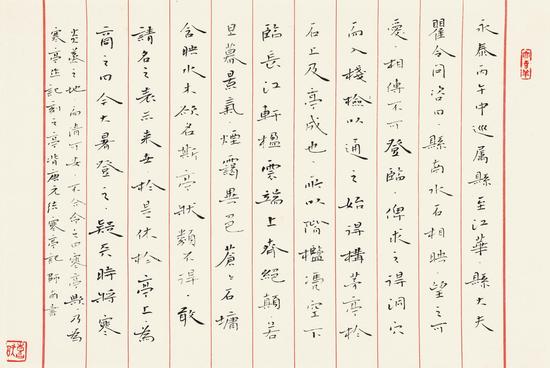 永泰丙午中巡属縣至江華縣大夫
瞿令问咨曰縣南水石相映望之可
愛相傳不可登臨俾求之得洞穴
而入棧險以通之始得構茅亭於
石上及亭成也所以階檻憑空下
臨長江軒楹雲端上齊絕顛若
旦暮景氣煙靄異色蒼〻石墉
含映水木欲名斯亭狀類不得敢
請名之表示来世於是休於亭上為
商之曰今大暑登之疑天時將寒
炎蒸之地而清可安不合命之曰寒亭歟乃為
寒亭造記刻之亭背唐元结寒亭記師南書